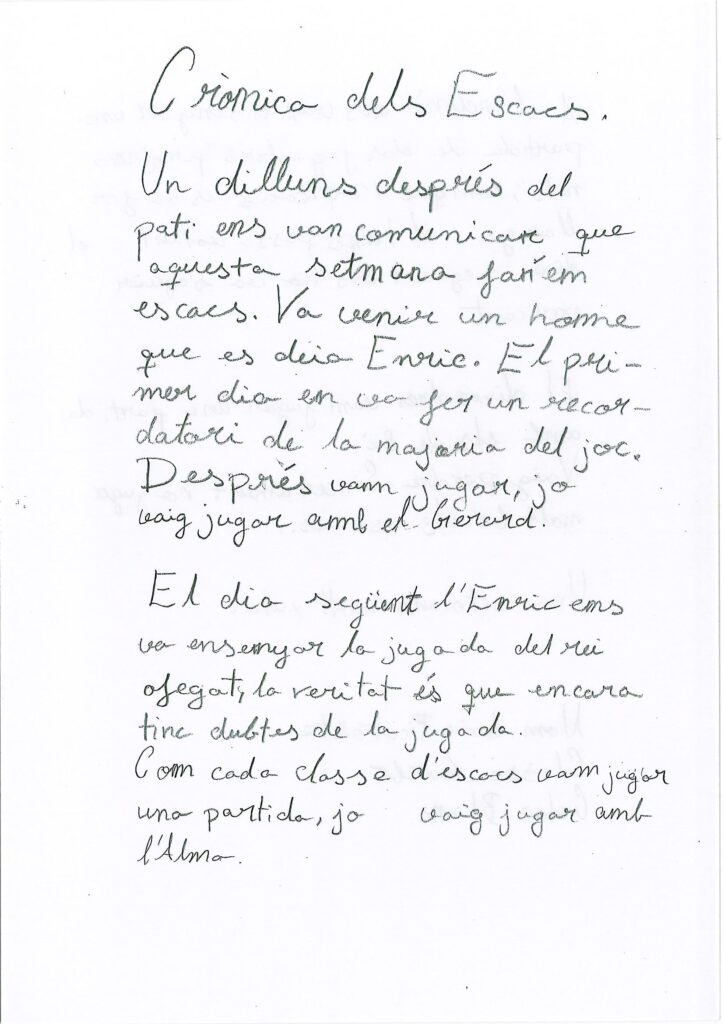 Crònica dels Escacs.
Un dilluns després del
pati ens van comunicar que
aquesta setmana faríem
escacs. Va venir un home
que es deia Enric. El pri-
mer dia en va fer un recor-
datori de la majoria del joc.
Després vam jugar, jo
vaig jugar amb el Gerard.
El dia següent l'Enric ens
va ensenyar la jugada del rei
ofegat, la veritat és que encara
tinc dubtes de la jugada.
Com cada classe d'escacs vam jugar
una partida, jo vaig jugar amb
l'Alma.